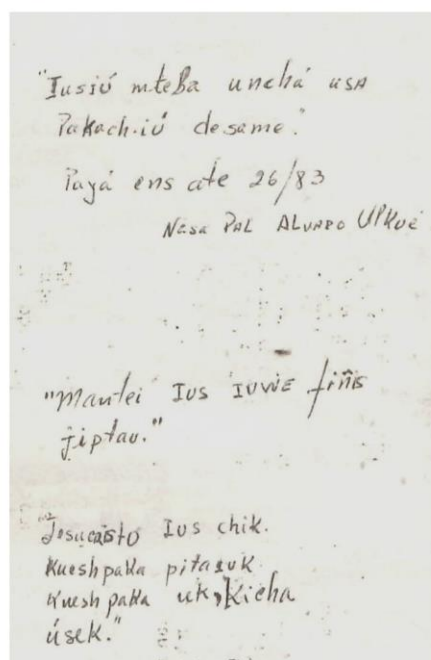 "Iusiú mteba unchá usa
Pakach-iú desame."
Payá ens ate 26/83
Nasa Pal Alvaro Ulkué
"Mantei Ius Iuwe fiñis
jiptau."
"Jesucristo Ius chik.
Kueshpaka pitasuk
Kuesh paka uk, Kicha
úsek."